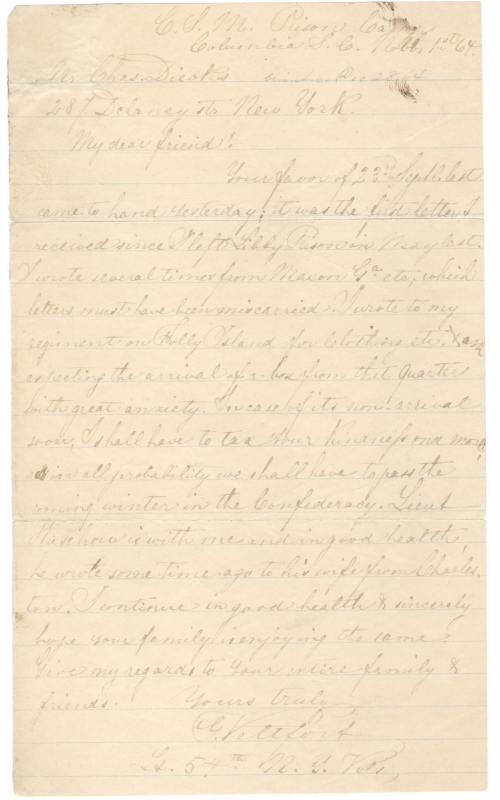 C. S. M. Prison Camp
Columbia S. C. Nov. 1st 64.
Mr Chas. Dieaks
287 Delancey str New York.
My dear friend!
Your favor of 23d Septb. last
came to hand yesterday; it was the first letter I
received since I left Libby Prison in May last.
I wrote several times from Macon Ga etc, which
letters must have been miscarried. I wrote to my
regiment on Folly Island for clothing etc. & am
expecting the arrival of a box from that quarter
with great anxiety. In case of its non-arrival
soon, I shall have to tax your kindness once more
as in all probability we shall have to pass the
ming winter in the Confederacy. Lieut
is with me and in good health
he wrote some time ago to his wife from Charles-
ton. I continue in good health & sincerely
hope your family is enjoying the same.
Give my regards to your entire family &
friends. Yours truly
Lt. 54th N. Y. Vols.